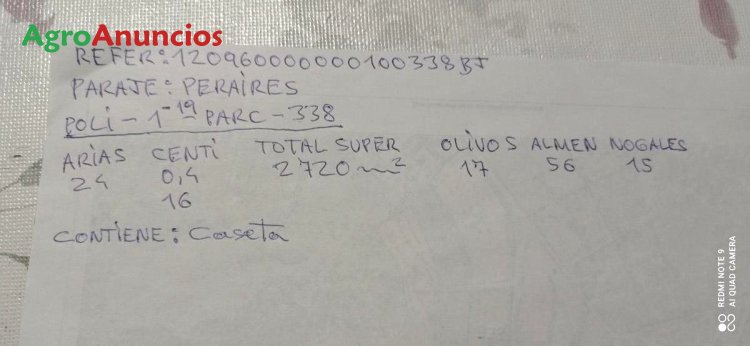 AgroAnuncios
REFER:12096000000100338BJ
PARAJE: PERAIRES
POLI-1-19 PARC-338
ARIAS CENTI TOTAL SUPER OLIVOS ALMEN NOGALES
24 0,4 2720m² 17 56 15
16
CONTIENE: Caseta
REDMI NOTE 9
AI QUAD CAMERA